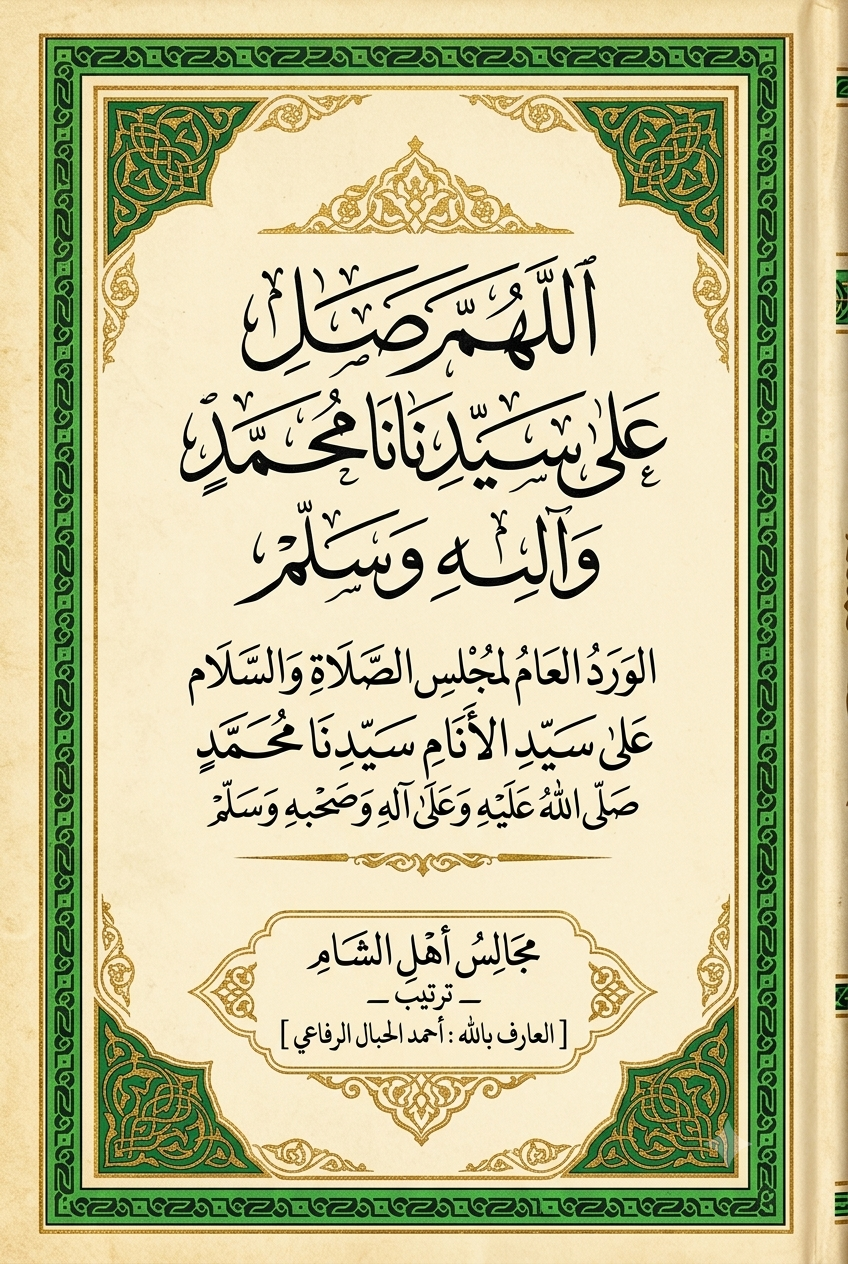 ٱللَّهُمَّ صَلِ
عَلىٰ سَيِّدِنَانَا مُحَمَّدٍ
وَآلِهِ وَسَلِّمْ
الوَرَدُ العَامُ لمَجْلِسِ الصَّلَاةِ وَالسَّلَام
عَلىٰ سَيِّدِ الأَنَامِ سَيِّدِنَا مُحَمَّدٍ
صَلّى اللهُ عَلَيْهِ وَعَلَىٰ آلهِ وَصَحْبهِ وَسَلّمْ
مجَالِسُ أهْلِ الشَامِ
– ترتيب –
[ العارف بالله : أحمد الحبال الرفاعي ]